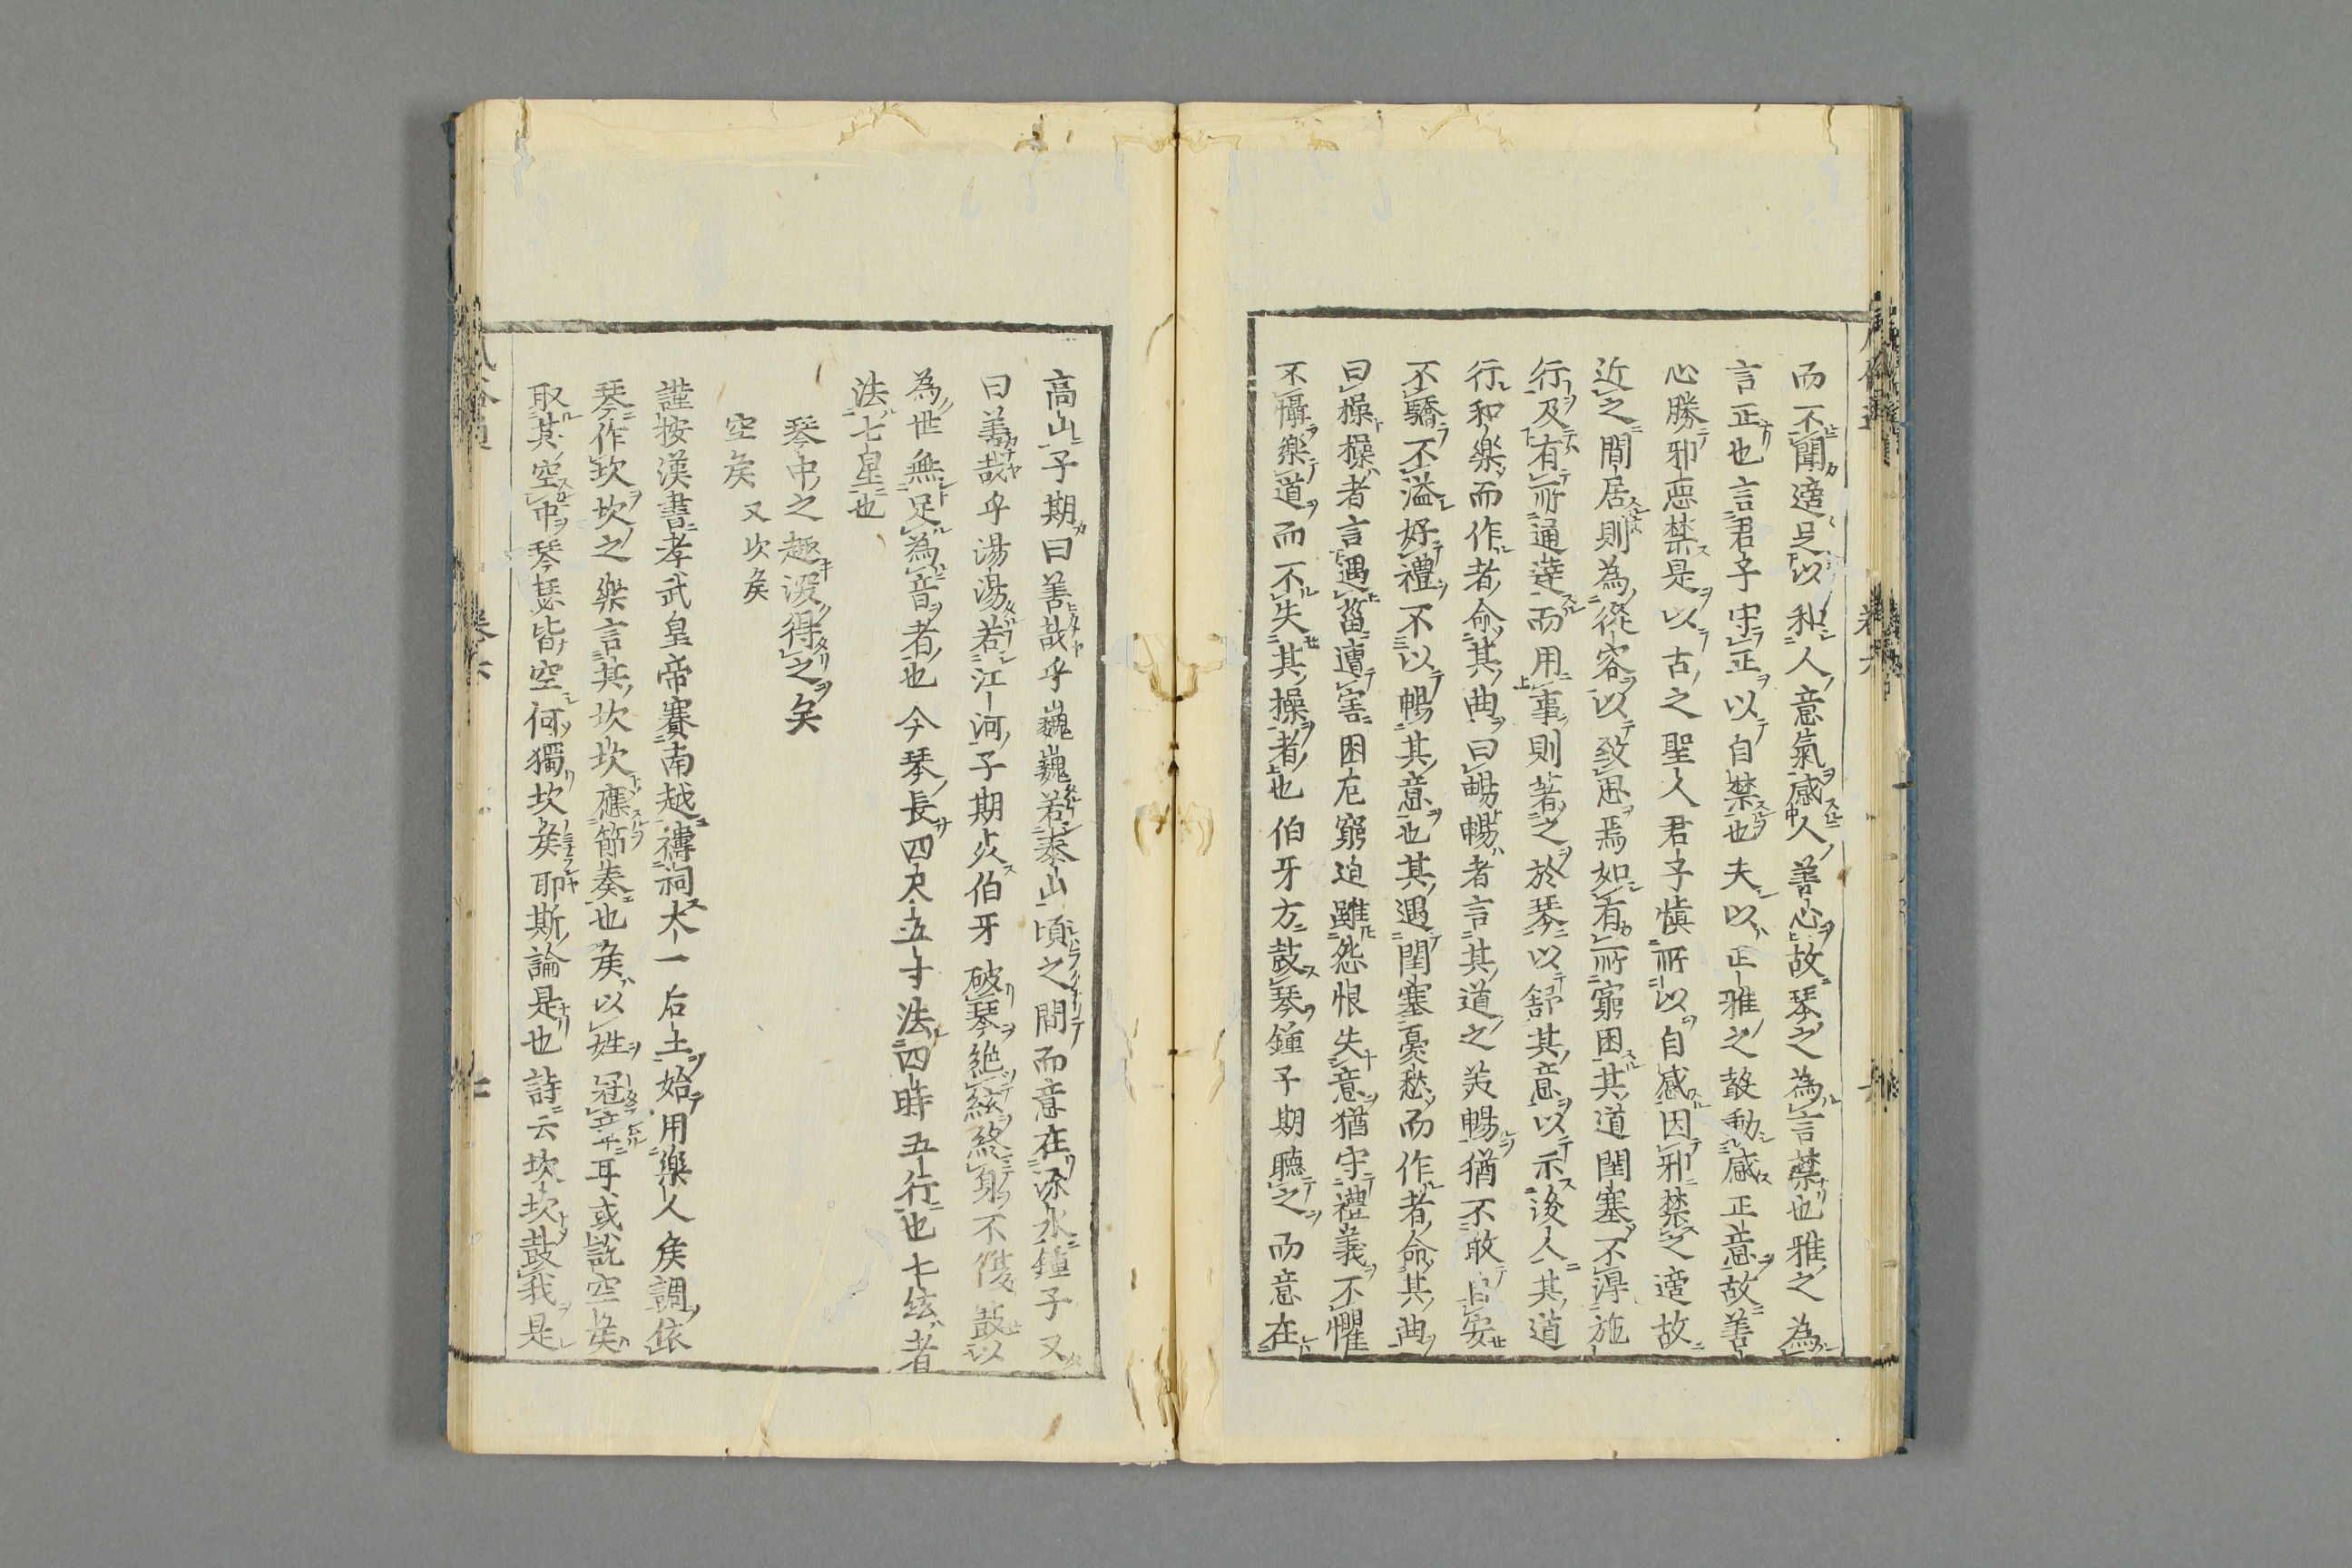 而不聞適足以和人意氣感人善心故琴之為言禁也雅之為
言正也言君子守正以自禁也夫以正雅之聲動感正意故善
心勝邪惡禁是以古之聖人君子慎所以自感因邪禁之適故
近之間居則為從容以致思焉如有所窮困其道閉塞不得施
行及有所通達而用事則著之於琴以舒其意以示後人其道
行和樂而作者命其曲曰暢暢者言其道之美暢猶不敢自安
不驕不溢好禮不以暢其意也其遇閉塞憂愁而作者命其曲
曰操操者言遇菑遭害困厄窮迫雖怨恨失意猶守禮義不懼
不懾樂道而不失其操者也伯牙方鼓琴鍾子期聽之而意在
高山子期曰善哉乎巍巍若泰山頃之間而意在流水鍾子又
曰善哉乎湯湯若江河子期死伯牙破琴絶絃終身不復鼓以
為世無足為音者也今琴長四尺五寸法四時五行也七絃者
法七星也
琴中之趣汲得之矣
空矦 又坎矦
謹按漢書孝武皇帝賽南越禱祠太一后土始用樂人矦調依
琴作坎坎之樂言其坎坎應節奏也矦以姓冠章耳或說空矦
取其空中琴瑟皆空何獨坎矦耶斯論是也詩云坎坎鼓我是
卷六